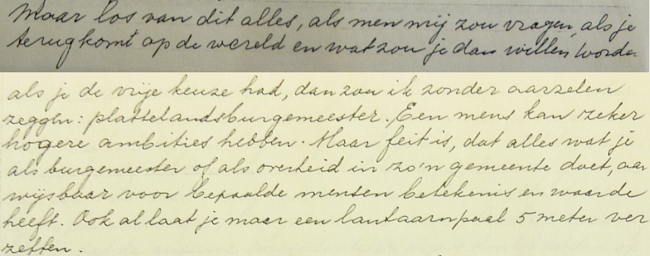 Maar los van dit alles, als men mij zou vragen, als je
terugkomt op de wereld en wat zou je dan willen worde
als je de vrije keuze had, dan zou ik zonder aarzelen
zeggen: plattelandsburgemeester. Een mens kan zeker
hogere ambities hebben. Maar feit is, dat alles wat je
als burgemeester of als overheid in zo'n gemeente doet, aan
wijsbaar voor bepaalde mensen betekenis en waarde
heeft. Ook al laat je maar een lantaarnpaal 5 meter ver
zetten.